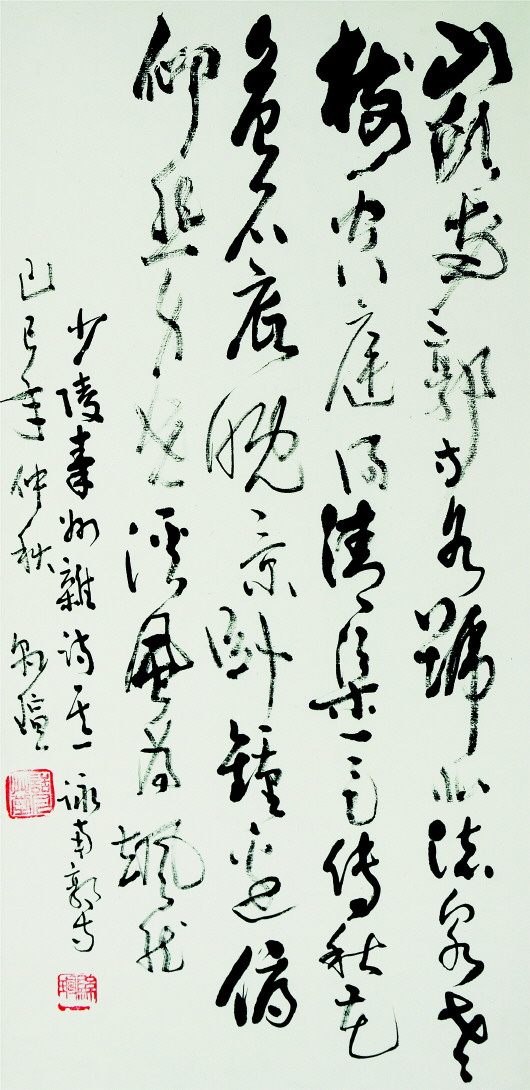 山頭南郭寺水號北流泉老
樹空庭得清渠一邑傳秋花
危石底晚景卧鐘邊俯
仰悲身世溪風為颯然
少陵秦州雜詩其一詠南郭寺
己巳年仲秋